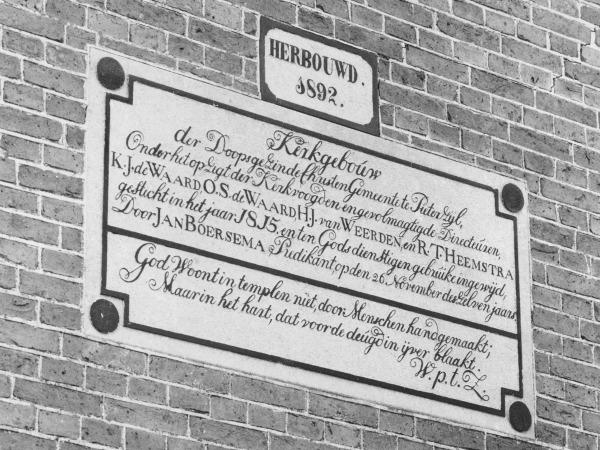 HERBOUWD.
1892.
Kerkgebouw
der Doopsgezinde Christen Gemeente te Pieterzyl,
Onder het opzigt der Kerkvoogden en gevolmagtigde Directeuren,
K.J. de WAARD O.S. de WAARD H.J. van WEERDEN, en R.T. HEEMSTRA
gesticht in het jaar 1815, en ten Godsdienstigen gebruike ingewijd,
Door JAN BOERSEMA Predikant, op den 26 November deszelven jaars.
God Woont in templen niet, door Menschen handgemaakt;
Maar in het hart, dat voor de deugd in ijver blaakt.
W.p.t.Z.